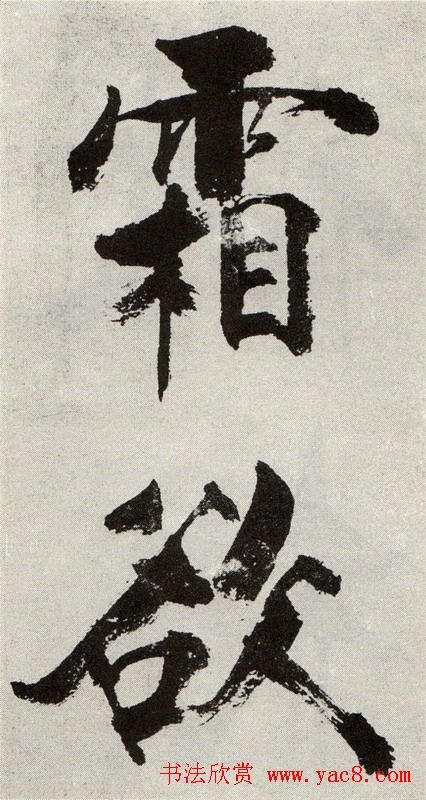 霜
欲
书法欣赏 www.yac8.com